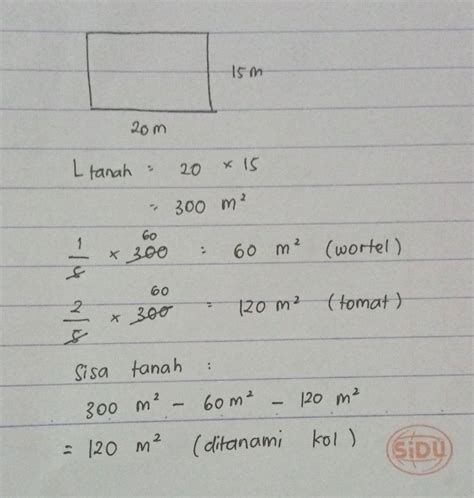 15 m
20 m
L tanah = 20 × 15
= 300 m²
1/5 × 300 60 = 60 m² (wortel)
2/5 × 300 60 = 120 m² (tomat)
Sisa tanah :
300 m² - 60 m² - 120 m²
= 120 m² (ditanami kol)
SiDU